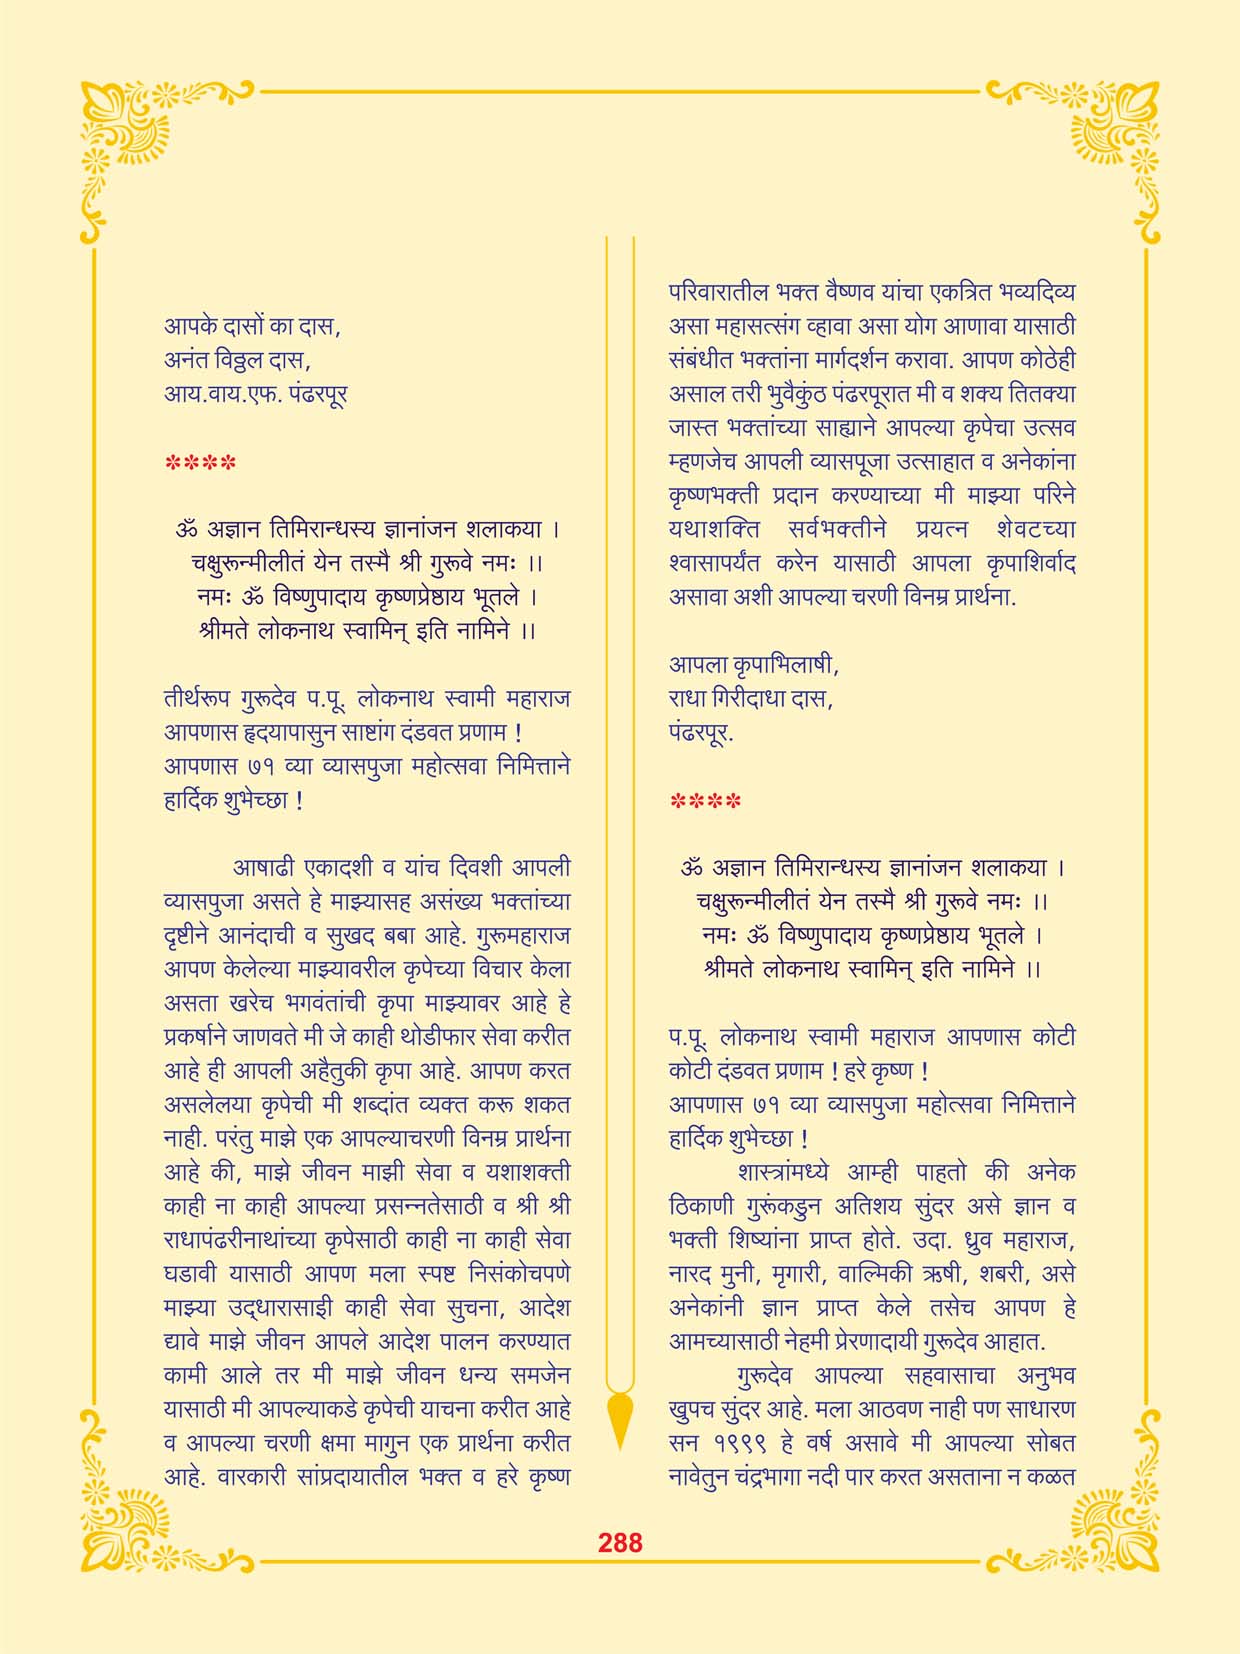 आपके दासों का दास,
अनंत विठ्ठल दास,
आय.वाय.एफ. पंढरपूर
****
ॐ अज्ञान तिमिरान्धस्य ज्ञानांजन शलाकया ।
चक्षुरून्मीलीतं येन तस्मै श्री गुरूवे नमः ।।
नमः ॐ विष्णुपादाय कृष्णप्रेष्ठाय भूतले ।
श्रीमते लोकनाथ स्वामिन् इति नामिने ।।
तीर्थरूप गुरूदेव प.पू. लोकनाथ स्वामी महाराज
आपणास हृदयापासुन साष्टांग दंडवत प्रणाम !
आपणास ७१ व्या व्यासपुजा महोत्सवा निमित्ताने
हार्दिक शुभेच्छा !
आषाढी एकादशी व यांच दिवशी आपली
व्यासपुजा असते हे माझ्यासह असंख्य भक्तांच्या
दृष्टीने आनंदाची व सुखद बबा आहे. गुरूमहाराज
आपण केलेल्या माझ्यावरील कृपेच्या विचार केला
असता खरेच भगवंतांची कृपा माझ्यावर आहे हे
प्रकर्षाने जाणवते मी जे काही थोडीफार सेवा करीत
आहे ही आपली अहैतुकी कृपा आहे. आपण करत
असलेलया कृपेची मी शब्दांत व्यक्त करू शकत
नाही. परंतु माझे एक आपल्याचरणी विनम्र प्रार्थना
आहे की, माझे जीवन माझी सेवा व यशाशक्ती
काही ना काही आपल्या प्रसन्नतेसाठी व श्री श्री
राधापंढरीनाथांच्या कृपेसाठी काही ना काही सेवा
घडावी यासाठी आपण मला स्पष्ट निसंकोचपणे
माझ्या उद्धारासाइी काही सेवा सुचना, आदेश
द्यावे माझे जीवन आपले आदेश पालन करण्यात
कामी आले तर मी माझे जीवन धन्य समजेन
यासाठी मी आपल्याकडे कृपेची याचना करीत आहे
व आपल्या चरणी क्षमा मागुन एक प्रार्थना करीत
आहे. वारकारी सांप्रदायातील भक्त व हरे कृष्ण
परिवारातील भक्त वैष्णव यांचा एकत्रित भव्यदिव्य
असा महासत्संग व्हावा असा योग आणावा यासाठी
संबंधीत भक्तांना मार्गदर्शन करावा. आपण कोठेही
असाल तरी भुवैकुंठ पंढरपूरात मी व शक्य तितक्या
जास्त भक्तांच्या साह्याने आपल्या कृपेचा उत्सव
म्हणजेच आपली व्यासपूजा उत्साहात व अनेकांना
कृष्णभक्ती प्रदान करण्याच्या मी माझ्या परिने
यथाशक्ति सर्वभक्तीने प्रयत्न शेवटच्या
श्वासापर्यंत करेन यासाठी आपला कृपाशिर्वाद
असावा अशी आपल्या चरणी विनम्र प्रार्थना.
आपला कृपाभिलाषी,
राधा गिरीदाधा दास,
पंढरपूर.
****
ॐ अज्ञान तिमिरान्धस्य ज्ञानांजन शलाकया ।
चक्षुरून्मीलीतं येन तस्मै श्री गुरूवे नमः ।।
नमः ॐ विष्णुपादाय कृष्णप्रेष्ठाय भूतले ।
श्रीमते लोकनाथ स्वामिन् इति नामिने ।।
प.पू. लोकनाथ स्वामी महाराज आपणास कोटी
कोटी दंडवत प्रणाम ! हरे कृष्ण !
आपणास ७१ व्या व्यासपुजा महोत्सवा निमित्ताने
हार्दिक शुभेच्छा !
शास्त्रांमध्ये आम्ही पाहतो की अनेक
ठिकाणी गुरूंकडुन अतिशय सुंदर असे ज्ञान व
भक्ती शिष्यांना प्राप्त होते. उदा. ध्रुव महाराज,
नारद मुनी, मृगारी, वाल्मिकी ऋषी, शबरी, असे
अनेकांनी ज्ञान प्राप्त केले तसेच आपण हे
आमच्यासाठी नेहमी प्रेरणादायी गुरूदेव आहात.
गुरूदेव आपल्या सहवासाचा अनुभव
खुपच सुंदर आहे. मला आठवण नाही पण साधारण
सन १९९९ हे वर्ष असावे मी आपल्या सोबत
नावेतुन चंद्रभागा नदी पार करत असताना न कळत
288